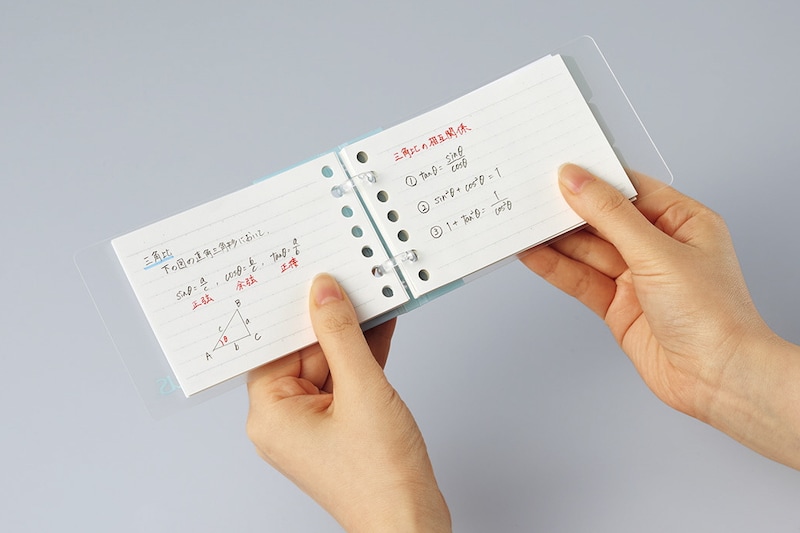 三角比
下の図の直角三角形において、
sinθ=a/c , cosθ=b/c , tanθ=a/b
正弦 余弦 正接
B
c a
θ
A b C
三角比の相互関係
① tanθ = sinθ/cosθ
② sin²θ + cos²θ = 1
③ 1 + tan²θ = 1/cos²θ